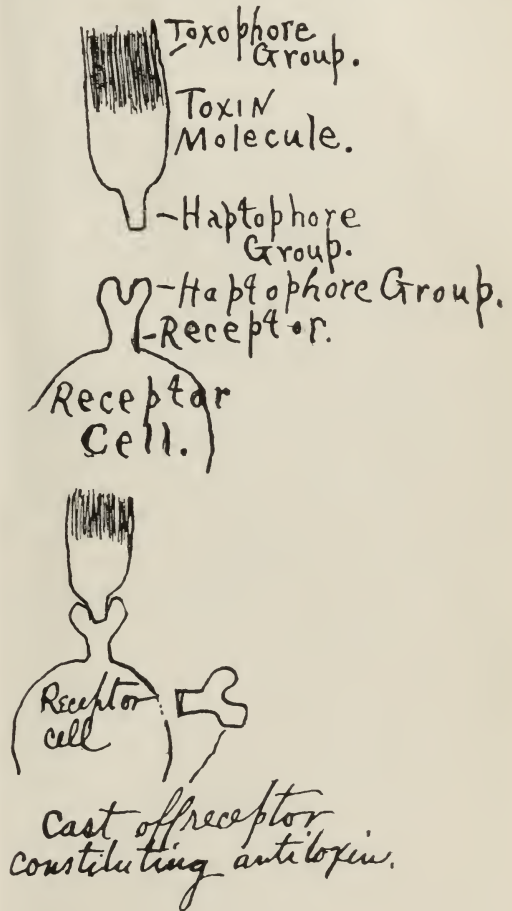 Toxophore
Group.
TOXIN
Molecule.
Haptophore
Group.
Haptophore Group.
Receptor.
Receptor
Cell.
Receptor
cell
Cast off receptor
constituting antitoxin.